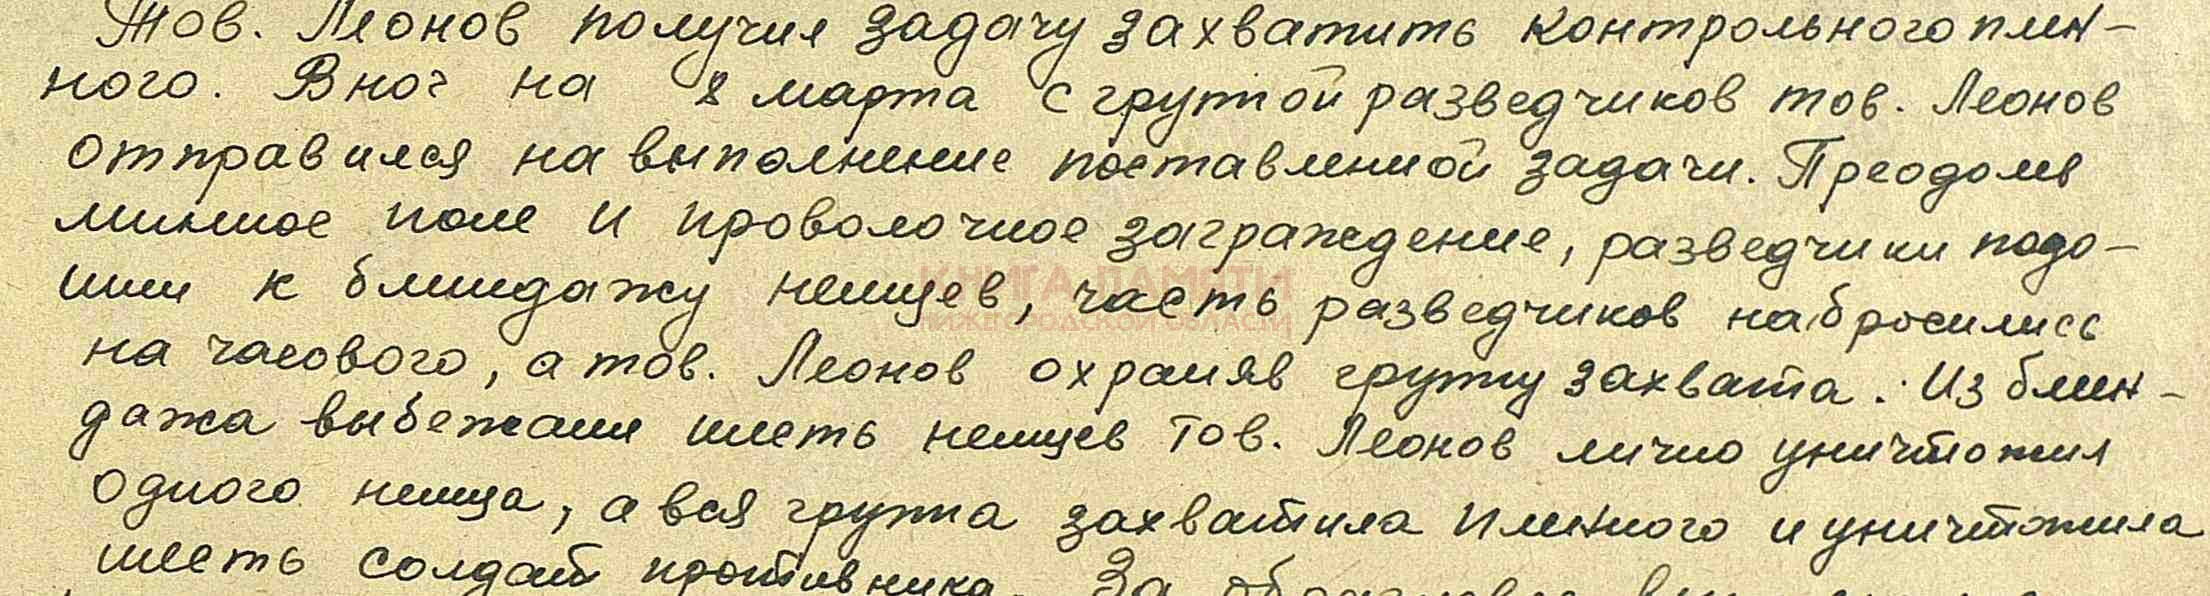 Тов. Леонов получил задачу захватить контрольного плен-
ного. В ноч на 8 марта с групой разведчиков тов. Леонов
отправился на выполнение поставленной задачи. Преодолев
минное поле и проволочное заграждение, разведчики подо-
шли к блиндажу немцев, часть разведчиков набросились
на часового, а тов. Леонов охраняв групу захвата. Из блин-
дажа выбежали шесть немцев тов. Леонов лично уничтожил
одного немца, а вся група захватила пленного и уничтожила
шесть солдат противника. За
КНИГА ПАМЯТИ
НИЖЕГОРОДСКОЙ ОБЛАСТИ